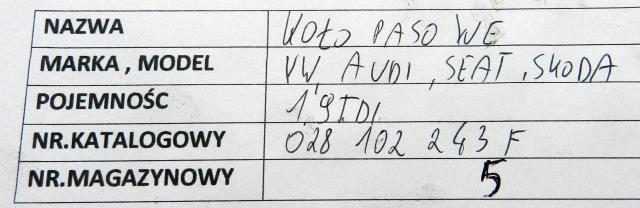 NAZWA KOŁO PASOWE
MARKA , MODEL VW, AUDI, SEAT, SKODA
POJEMNOŚC 1,9TDI
NR.KATALOGOWY 028 102 243 F
NR.MAGAZYNOWY 5